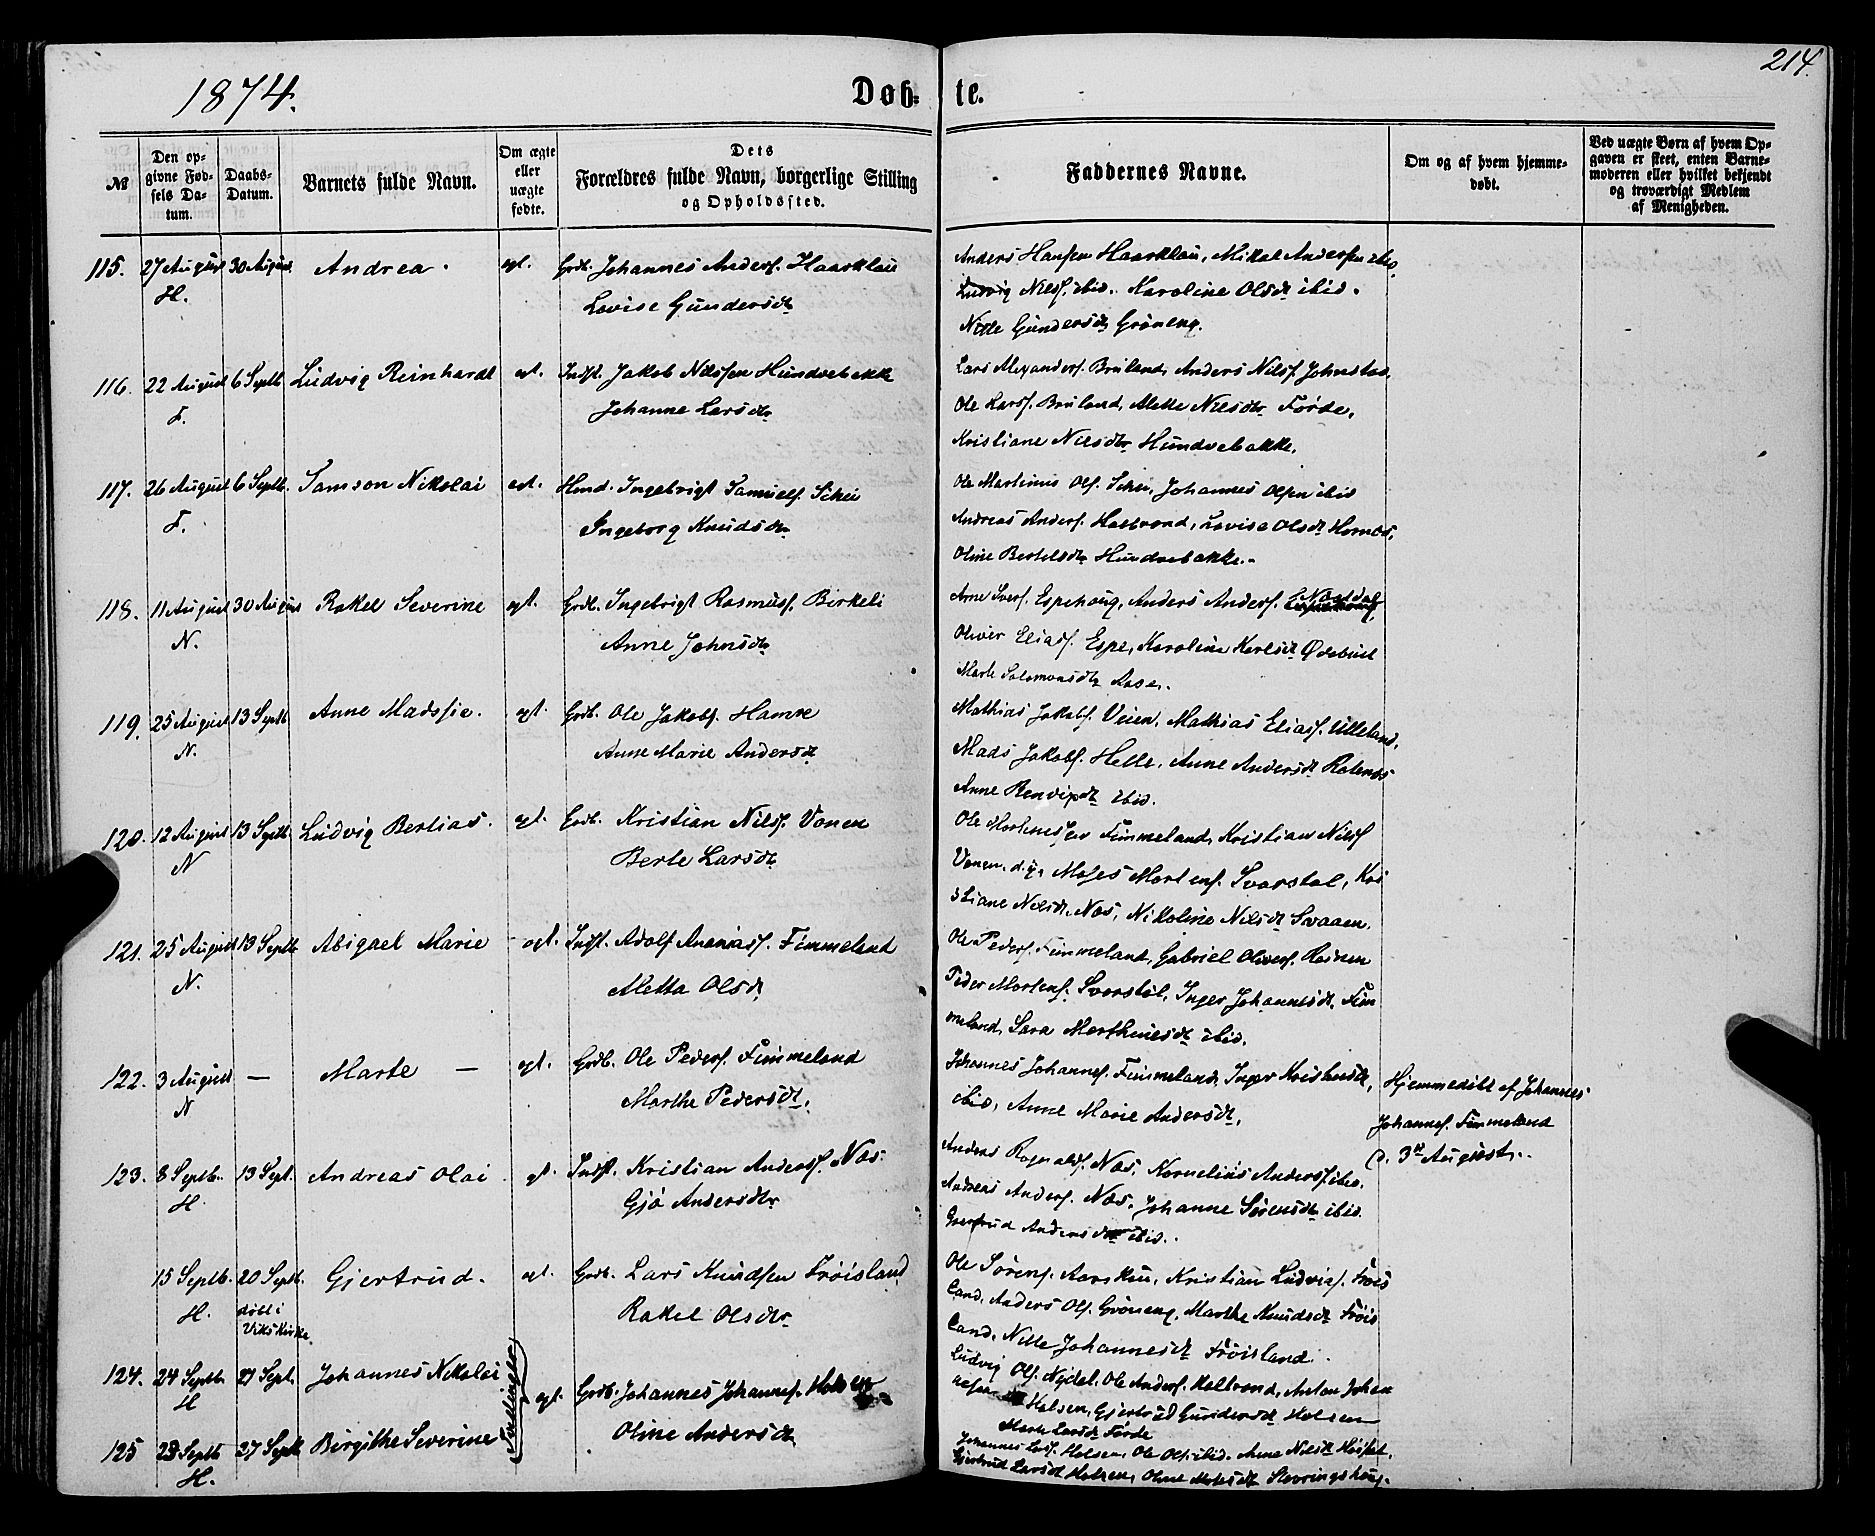 214.
1874.
Døb-te.
№
Den opgivne Fødsels Datum.
Daabs-Datum.
Barnets fulde Navn.
Om ægte eller uægte fødte.
Dets Forældres fulde Navn, borgerlige Stilling og Opholdssted.
Faddernes Navne.
Om og af hvem hjemmedøbt.
Ved uægte Børn af hvem Opgaven er skeet, enten Barnemoderen eller hvilket bekjendt og troværdigt Medlem af Menigheden.
115. 27 August 30 August Andrea. egt. Grdb. Johannes Anders. Haarklau
H. Lovise Gundersdtr
Anders Hansen Haarklau, Mikal Andersen ibid.
Ludvig Nilss. ibid. Karoline Olsdt ibid.
Nille Gundersdtr Grøneng.
116. 22 August 6 Septb. Ludvig Reinhardt egt. Indst. Jakob Nilssen Hundvebakke
F. Johanne Larsdtr
Lars Alexanders. Bruland, Anders Nilss. Johnstad,
Ole Larss. Bruland, Alette Nilsdtr Førde,
Kristiane Nilsdtr Hundvebakke.
117. 26 August 6 Septb. Samson Nikolai egt. Hmd. Ingebrigt Samuels. Schei
F. Ingeborg Knudsdtr
Ole Martinus Ols. Schei, Johannes Olsen ibid
Andreas Anders. Halbrend, Lovise Olsdt Hornes,
Oline Bertelsdtr Hundvebakke.
118. 11 August 30 August Rakel Severine egt. Grdb. Ingebrigt Rasmuss. Birkeli
N. Anne Johnsdtr
Arne Ivers. Espehoug, Anders Anders. Naustdal
Oliver Eliass. Espe, Karoline Karlsdt Ødebiel
Marte Salomonsdtr Aase.
119. 25 August 13 Septb. Anne Madssie. egt. Grdb. Ole Jakobs. Hamre
N. Anne Marie Andersdt
Mathias Jakobs. Veien, Mathias Eliass. Ulleland,
Mads Jakobs. Helle, Anne Andersdt
Anne ibid.
120. 12 August 13 Septb. Ludvig Bertias. egt. Grdb. Kristian Nilss. Vonen
N Berte Larsdt
Ole Fimmeland, Kristian Nilss
Vonen d.y. Moses Mortens. Svorstøl, Kri
stiane Nilsdt. Næs, Nikoline Nilsdt Svaaen.
121. 25 August 13 Septb. Abigael Marie egt. Indst. Adolf Ananiass. Fimmeland
N. Aletta Olsdt
Ole Peders. Fimmeland, Gabriel Olivers.
Peder Mortens. Svorstøl, Inger Johannesdt. Fim
meland, Sara Marthinusdt ibid.
122. 3 August — Marte — egt. Grdb. Ole Peders. Fimmeland
N Marthe Pedersdt.
Johannes Johannes. Fimmeland, Inger
ibid, Anne Marie Andersdt,
Hjemmedøbt af Johannes
Johannes. Fimmeland
d. 3de August.
123. 8 Septb. 13 Sept. Andreas Olai egt. Indst. Kristian Anders. Næs.
H. Gjø Andersdtr
Anders Rognalds. Næs, Kornelius Anderss. ibid.
Andreas Anders. Næs, Johanne Sørensdt ibid.
Gjertrud Andersdtr ibid.
15 Septb. 20 Septb. Gjertrud. egt. Grdb. Lars Knudsen Frøisland
H. døbt i Viks Kirke. Rakel Olsdtr
Ole Sørens. Aarskau, Kristian Ludvigs. Frøis
land, Anders Ols. Grøneng, Marthe Knudsdt Frøis
land, Nille Johannesdt Frøisland.
124. 24 Septb. 27 Sept. Johannes Nikolai Tvillinger egt. Grdb. Johannes Johannes. Holsen
H Oline Andersdtr
Ludvig Ols. Nydal, Ole Anders. Halbrend, Anton Johan
nesen Holsen, Gjertrud Gundersdt Holsen
Marte Larsdt Førde
125 23 Septb 27 Septb Birgithe Severine
H.
Johannes Larss. Holsen, Ole Ols. ibid. Anne Nilsdt
Gjertrud Larsdt Holsen, Oline